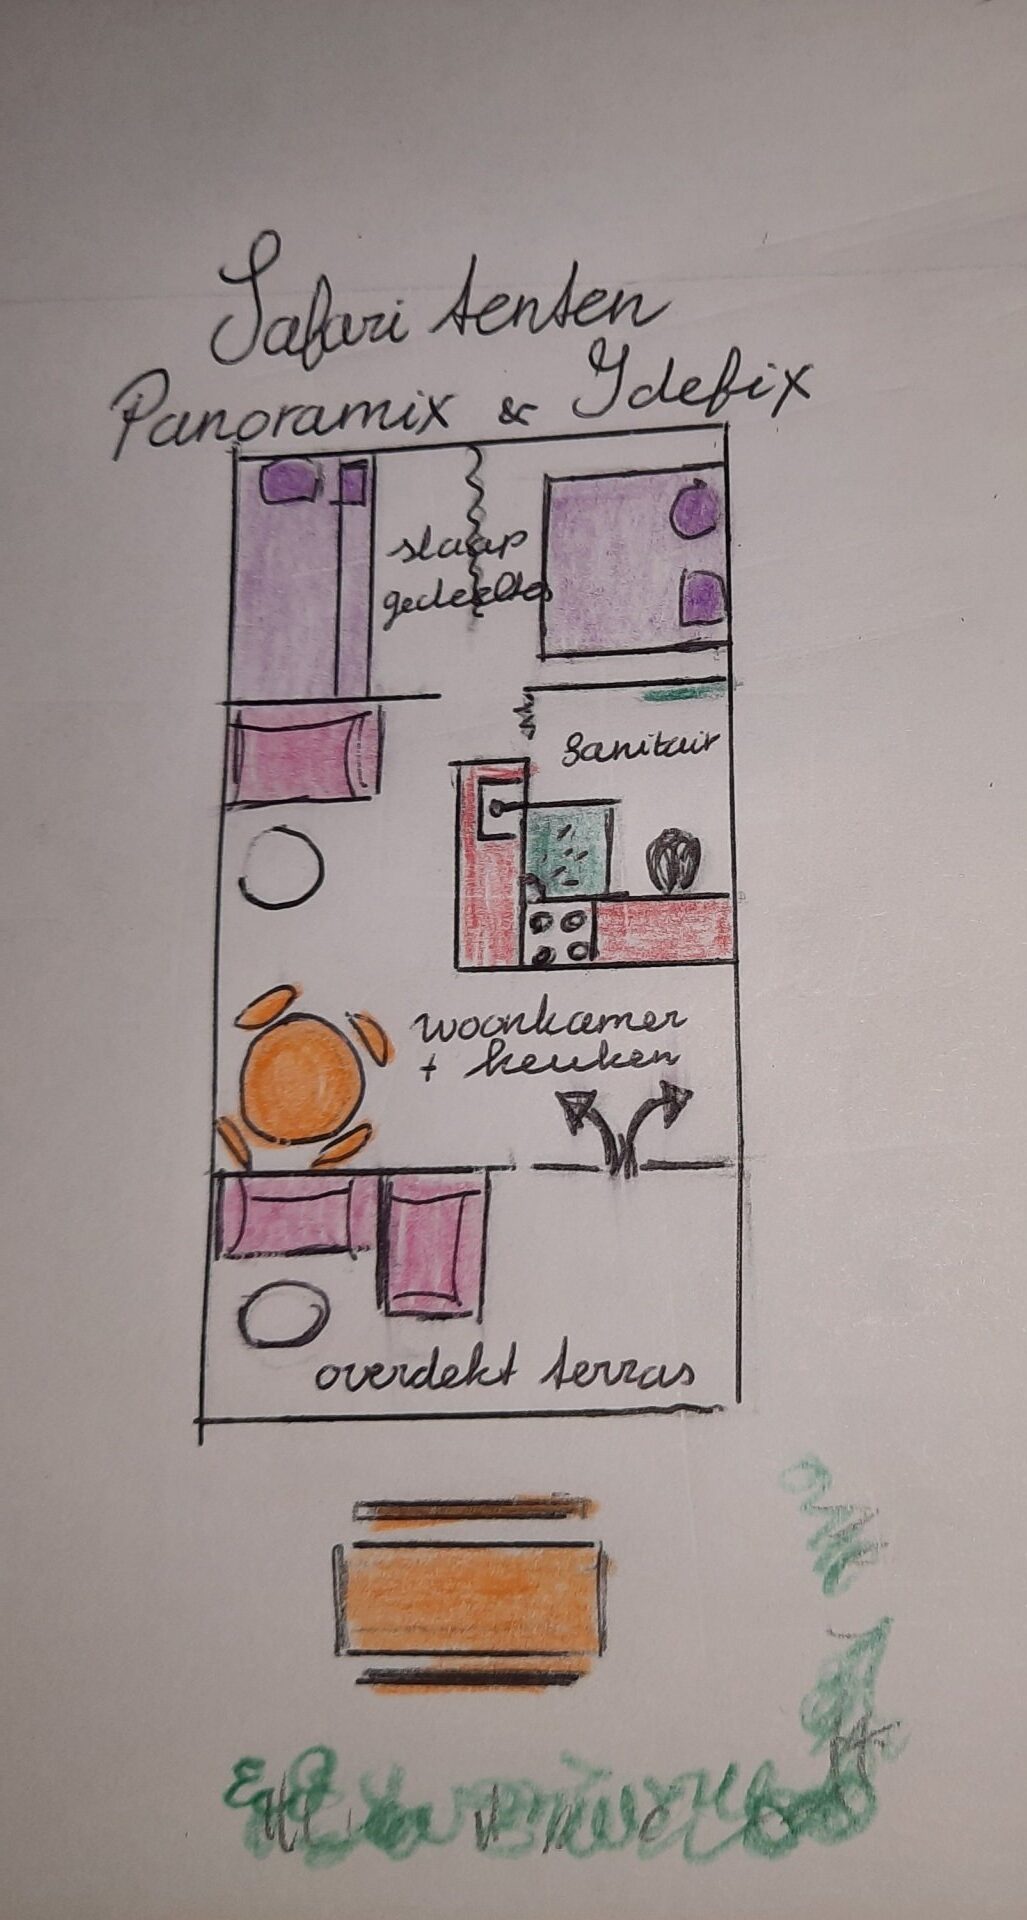 Safari tenten
Panoramix & Idefix
slaap
gedeeltes
Sanitair
woonkamer
+ keuken
overdekt terras